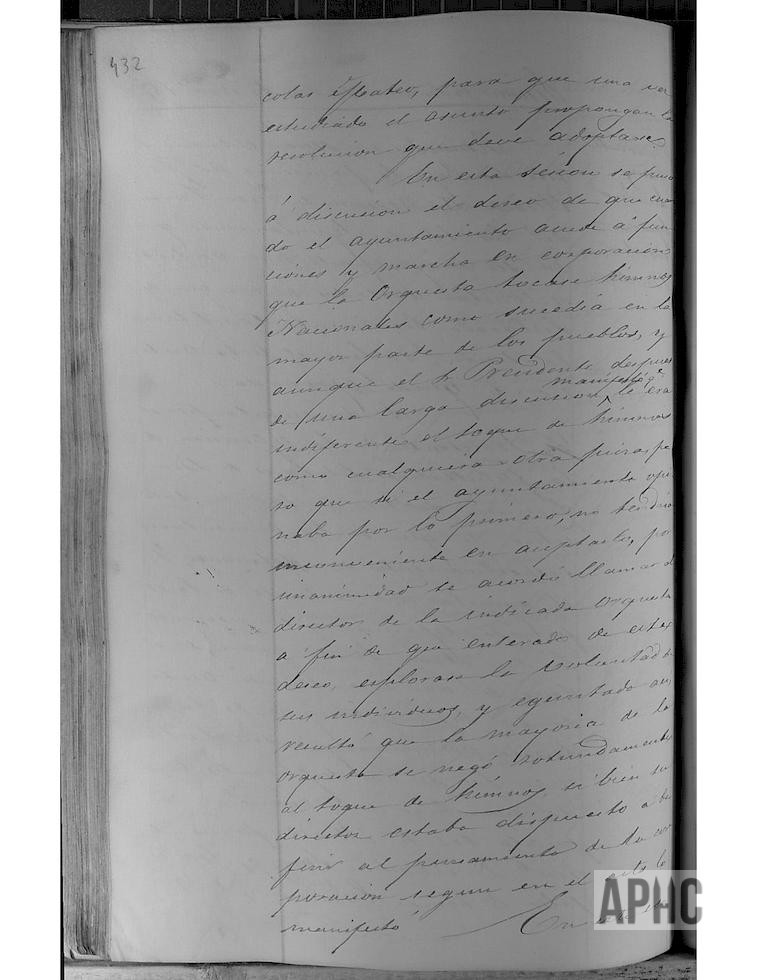 432
colas y Mateo, para que una vez
estudiado el asunto propongan la
resolucion que deve adoptarse
En esta sesion se puso
á discusion el deseo de que cuan
do el ayuntamiento acude á fun
ciones y marcha en corporacion
que la Orquesta tocase himnos
Nacionales como sucedia en la
mayor parte de los pueblos, y
aunque el Sr Presidente despues
manifestó qe
de una larga discusion, le era
indiferente el toque de himnos
como cualquiera otra pieza, pe
ro que si el ayuntamiento opi
naba por lo primero, no tendria
inconveniente en aceptarlo, por
unanimidad se acordó llamar al
director de la indicada Orquesta
a fin de que enterado de este
deseo, explorase la voluntad de
sus individuos, y egecutado asi,
resultó que la mayoria de la
orquesta se negó rotundamente
al toque de himnos si bien su
director estaba dispuesto a de
ferir al pensamiento de la cor
poracion segun en el acto lo
manifestó
En
APHC